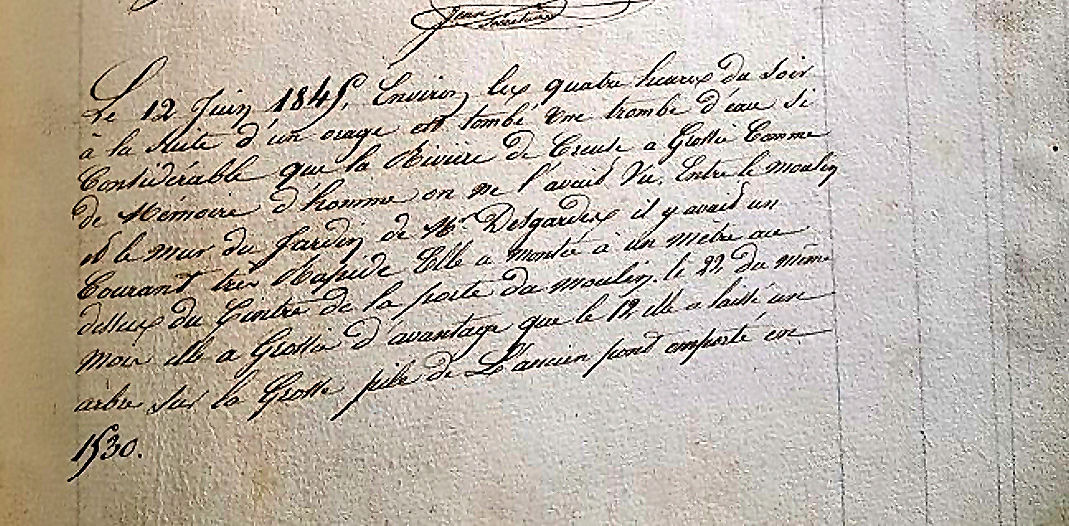 Jean
Secrétaire
Le 12 Juin 1845, Environ les quatre heures du soir
à la Suite d'un orage est tombé Une trombe d'eau si
Considérable que la Rivière de Creuse a Grossie Comme
de Mémoire d'homme on ne l'avait Vu. Entre le moulin
et le mur du Jardin de Mr Desgardes il y avait un
Courant très Rapide Elle a montée à un mètre au
dessus du Cintre de la porte du moulin. le 22 du même
mois elle a Grossie d'avantage que le 12 elle a laissé un
arbre sur la Grosse pile de L'ancien pont emporté en
1530.